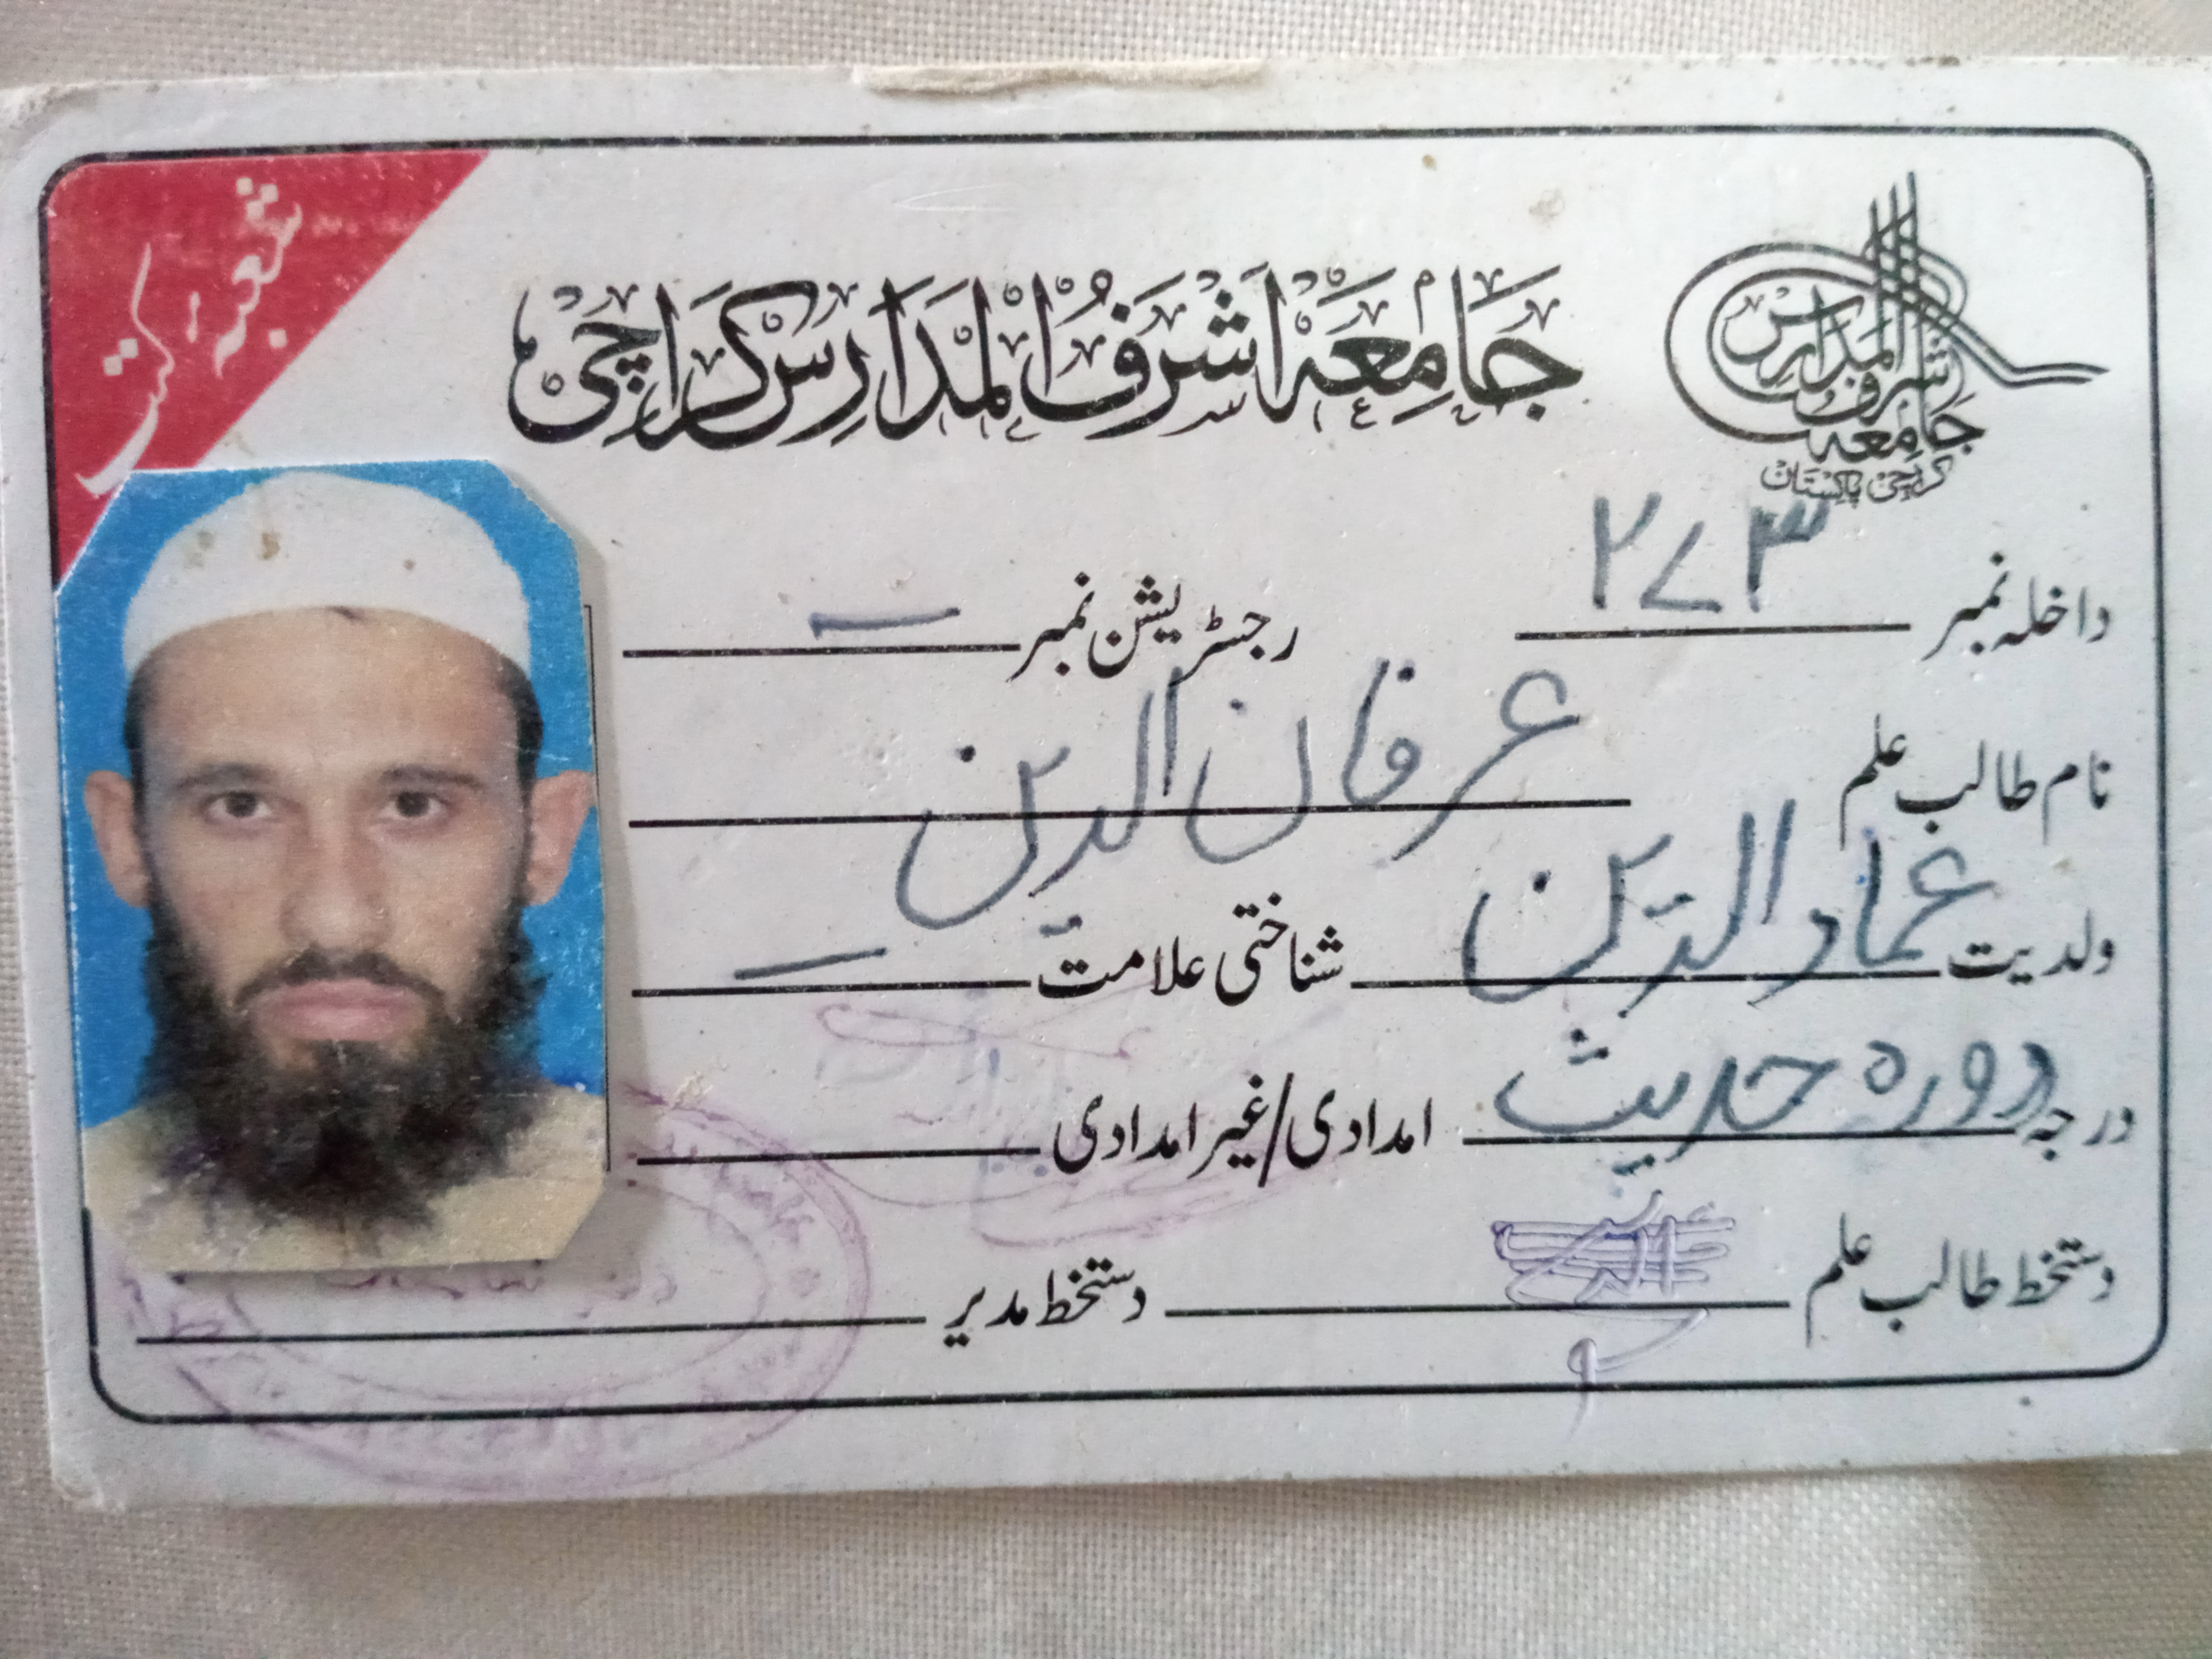 شعبہ کتب
جامعہ اشرف المدارس کراچی
جامعہ اشرف المدارس
کراچی پاکستان
داخلہ نمبر ۲۷۳ رجسٹریشن نمبر —
نام طالب علم عرفان الدین
ولدیت عماد الدین شناختی علامت —
درجہ دورہ حدیث امدادی/غیر امدادی
دستخط طالب علم دستخط مدیر